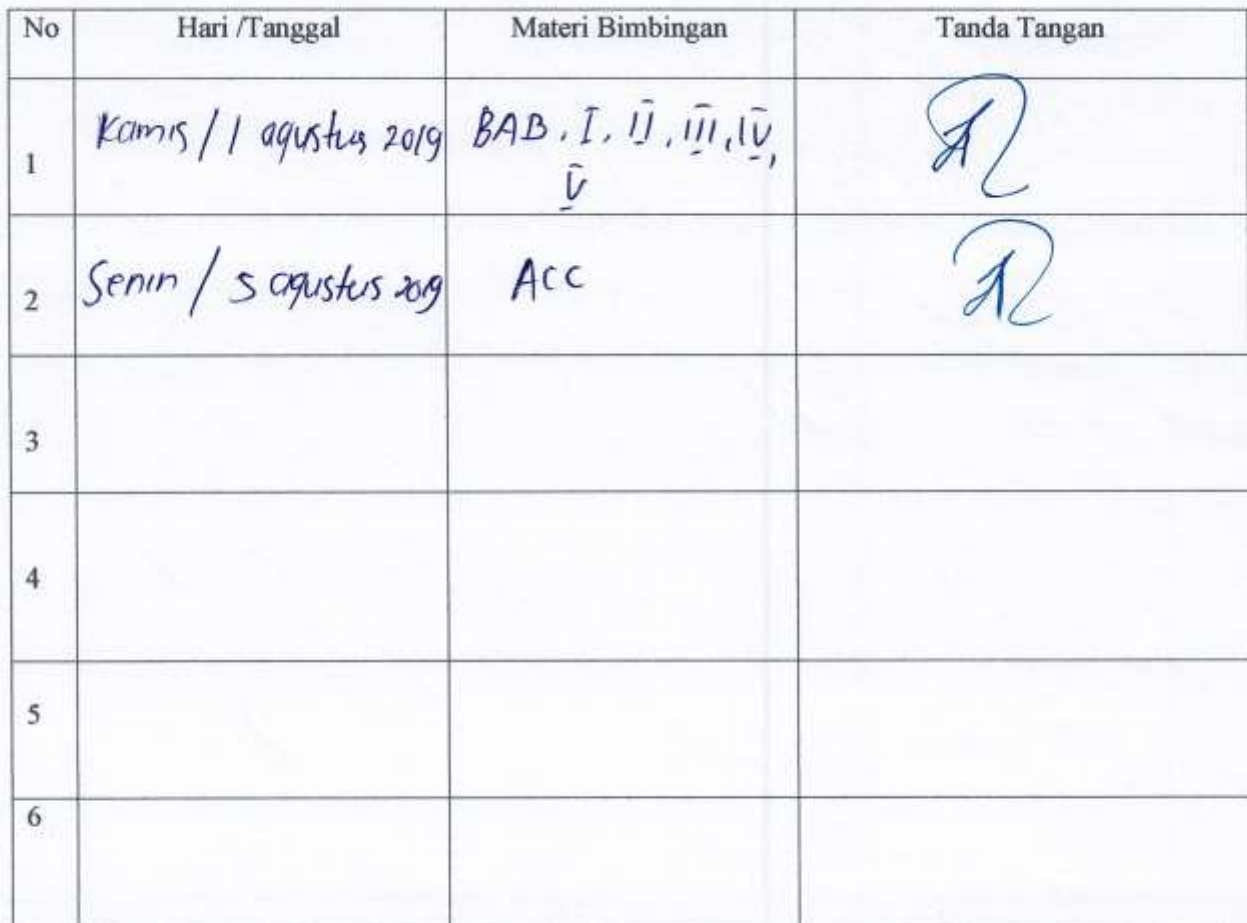 No Hari /Tanggal Materi Bimbingan Tanda Tangan
1 Kamis / 1 agustus 2019 BAB . I . II . III , IV,
V
2 Senin / 5 agustus 2019 ACC
3
4
5
6